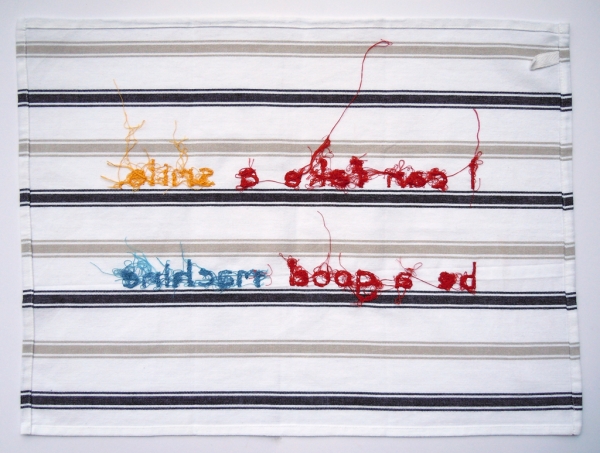 I can fake a smile
be a good machine